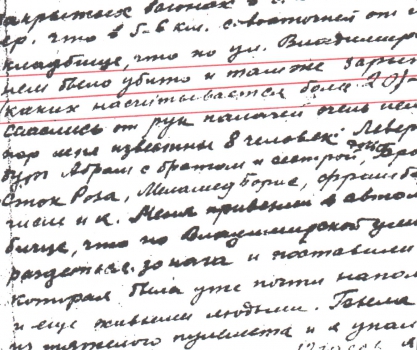 закрытых вагонах в
ер. что в 5-6 км. с восточной от
кладбище, что по ул. Владимирс
нем было убито и там же зарыт
каких насчитывается более 20
спаслись от рук палачей очень
пор мне известны 8 человек: Левер
бух Абрам с братом и сестрой,
Сток Роза, Меламед Борис,
числе и я. Меня привезли в автом
бище, что по Владимирской ули
раздеться до нага и поставили
которая была уже почти напол
и еще живыми людьми.
из тяжелого пулемета и я упал